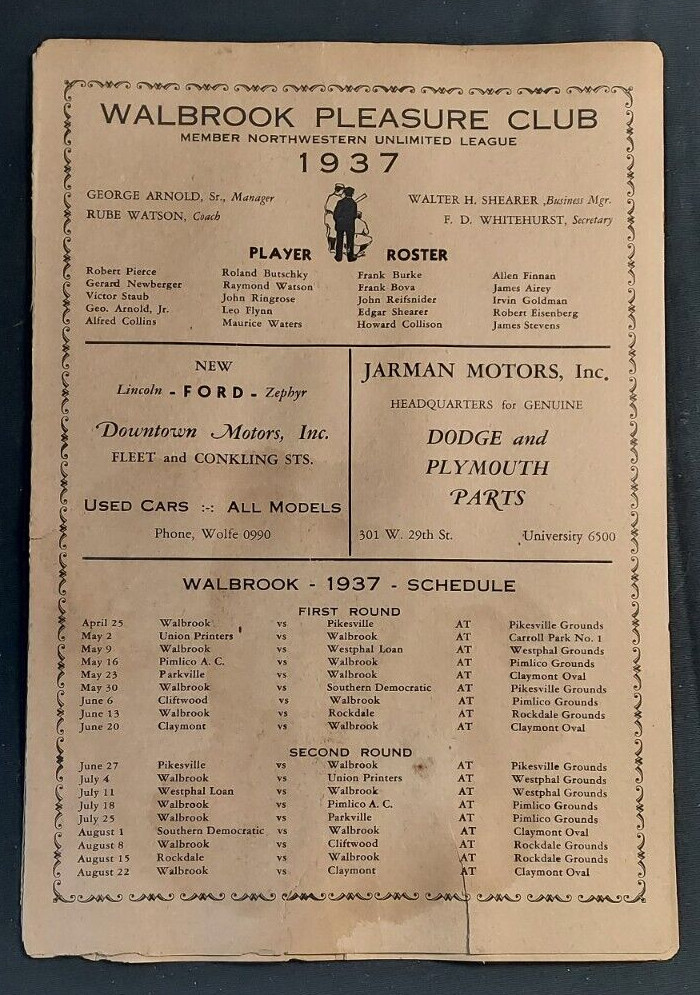 WALBROOK PLEASURE CLUB
MEMBER NORTHWESTERN UNLIMITED LEAGUE
1937
GEORGE ARNOLD, Sr., Manager WALTER H. SHEARER ,Business Mgr.
RUBE WATSON, Coach F. D. WHITEHURST, Secretary
PLAYER ROSTER
Robert Pierce Roland Butschky Frank Burke Allen Finnan
Gerard Newberger Raymond Watson Frank Bova James Airey
Victor Staub John Ringrose John Reifsnider Irvin Goldman
Geo. Arnold, Jr. Leo Flynn Edgar Shearer Robert Eisenberg
Alfred Collins Maurice Waters Howard Collison James Stevens
NEW
Lincoln - FORD - Zephyr
Downtown Motors, Inc.
FLEET and CONKLING STS.
USED CARS :-: ALL MODELS
Phone, Wolfe 0990
JARMAN MOTORS, Inc.
HEADQUARTERS for GENUINE
DODGE and
PLYMOUTH
PARTS
301 W. 29th St. University 6500
WALBROOK - 1937 - SCHEDULE
FIRST ROUND
April 25 Walbrook vs Pikesville AT Pikesville Grounds
May 2 Union Printers vs Walbrook AT Carroll Park No. 1
May 9 Walbrook vs Westphal Loan AT Westphal Grounds
May 16 Pimlico A. C. vs Walbrook AT Pimlico Grounds
May 23 Parkville vs Walbrook AT Claymont Oval
May 30 Walbrook vs Southern Democratic AT Pikesville Grounds
June 6 Cliftwood vs Walbrook AT Pimlico Grounds
June 13 Walbrook vs Rockdale AT Rockdale Grounds
June 20 Claymont vs Walbrook AT Claymont Oval
SECOND ROUND
June 27 Pikesville vs Walbrook AT Pikesville Grounds
July 4 Walbrook vs Union Printers AT Westphal Grounds
July 11 Westphal Loan vs Walbrook AT Westphal Grounds
July 18 Walbrook vs Pimlico A. C. AT Pimlico Grounds
July 25 Walbrook vs Parkville AT Pimlico Grounds
August 1 Southern Democratic vs Walbrook AT Claymont Oval
August 8 Walbrook vs Cliftwood AT Rockdale Grounds
August 15 Rockdale vs Walbrook AT Rockdale Grounds
August 22 Walbrook vs Claymont AT Claymont Oval